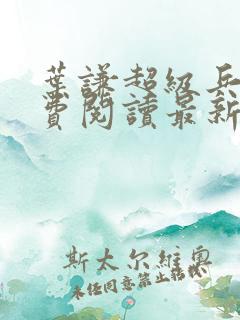 葉謙超級兵
費閱讀最新
斯太尔維奧
未经同意禁止转载